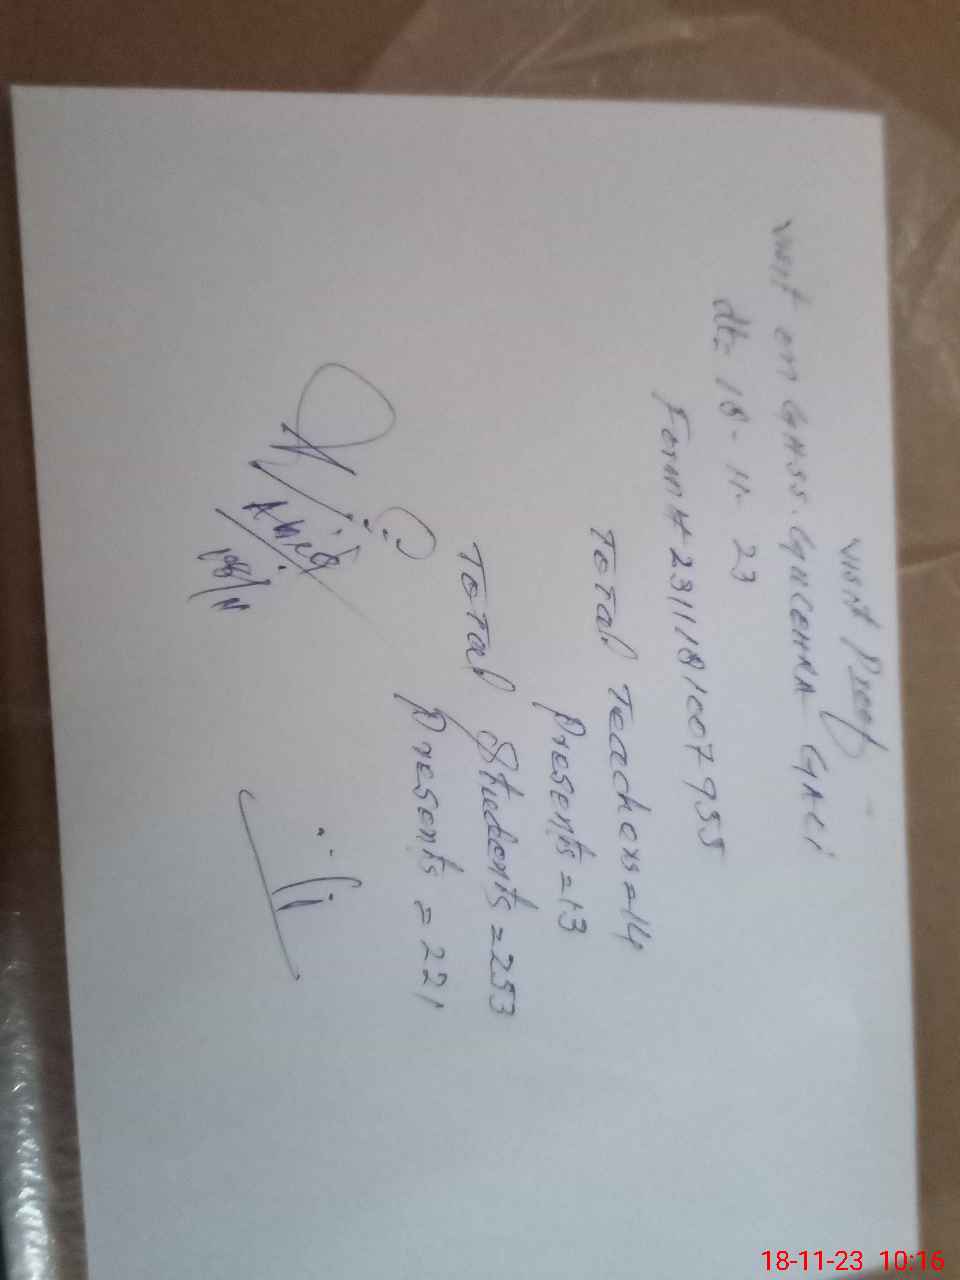 Visit Proof
Visit on GHSS. GHCEHHA GALI
dt= 18-11-23
Form # 231118100795S
Total Teachers=14
Presents=13
Total Students=253
Presents=221
18-11-23 10:16